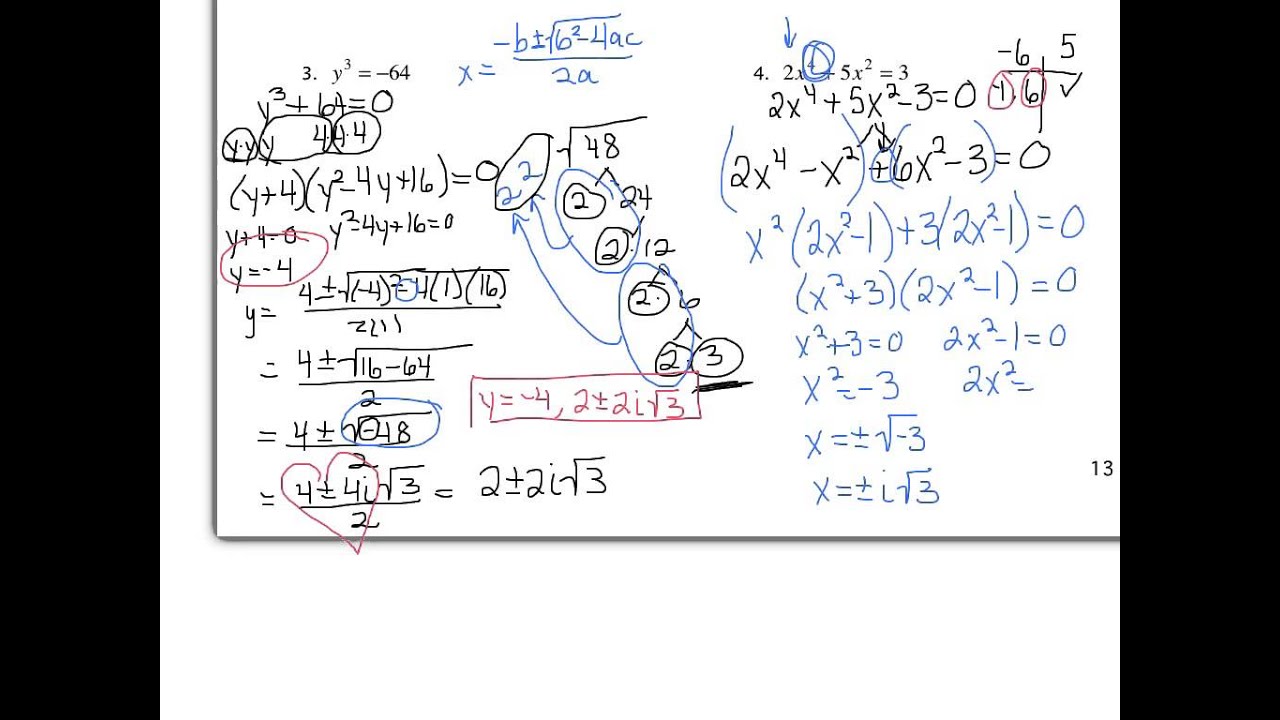 x = (-b±√(b²-4ac))/(2a)
3. y³ = -64
y³ + 64 = 0
y·y·y 4·4·4
(y+4)(y²-4y+16) = 0
y+4=0 y²-4y+16=0
y=-4
y = (4±√((-4)²-4(1)(16)))/(2(1))
= (4±√(16-64))/2
= (4±√(-48))/2
= (4±4i√3)/2 = 2±2i√3
2 2 √48
2 · 24
2 · 12
2 · 6
2 · 3
y=-4, 2±2i√3
4. 2x⁴ + 5x² = 3
-6 5
-1, 6 ✓
2x⁴ + 5x² - 3 = 0
(2x⁴ - x²) + (6x² - 3) = 0
x²(2x²-1) + 3(2x²-1) = 0
(x²+3)(2x²-1) = 0
x²+3=0 2x²-1=0
x² = -3 2x² =
x = ±√-3
x = ± i√3
13